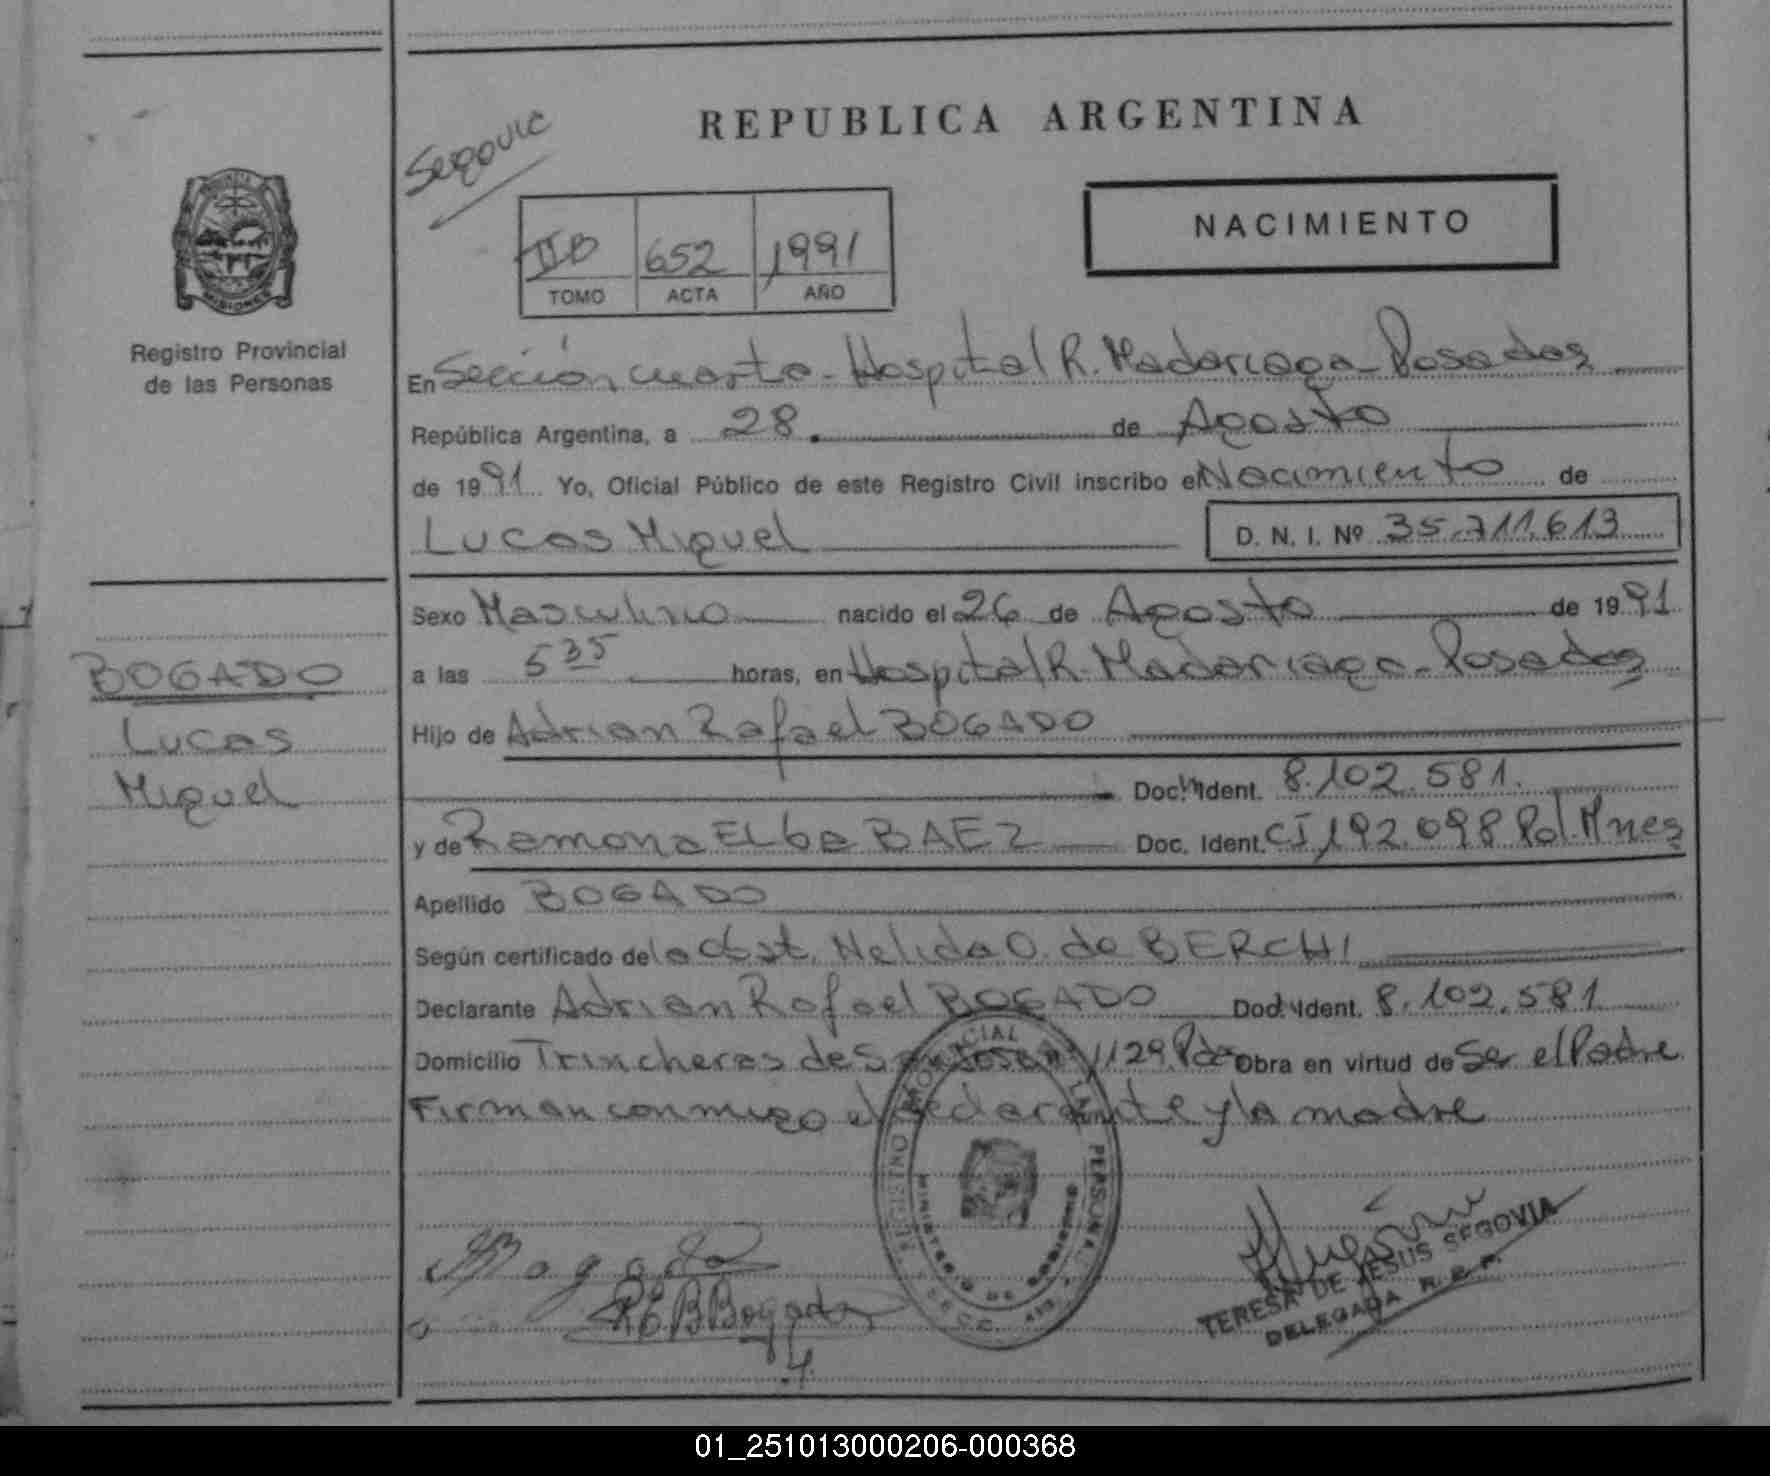 REPUBLICA ARGENTINA
Segovia
NACIMIENTO
II B 652 1991
TOMO ACTA AÑO
MISIONES
Registro Provincial
de las Personas
En Sección cuarta - Hospital R. Madariaga - Posadas
República Argentina, a 28 de Agosto
de 1991 Yo, Oficial Público de este Registro Civil inscribo el Nacimiento de
Lucas Miguel D. N. I. Nº 35.711.613
Sexo Masculino nacido el 26 de Agosto de 1991
a las 5 35 horas, en Hospital R. Madariaga - Posadas
Hijo de Adrian Rafael BOGADO
Doc. Ident. 8.102.581.
y de Ramona Elba BAEZ Doc. Ident. CI 192.098 Pol. Mnes
Apellido BOGADO
Según certificado de la Obst. Nelida O. de BERCHI
Declarante Adrian Rafael BOGADO Doc. Ident. 8.102.581
Domicilio Trincheras de San José Nº 1129. Pdas Obra en virtud de Ser el Padre
Firman conmigo el declarante y la madre
BOGADO
Lucas
Miguel
Bogado
R E B Bogado
REGISTRO PROVINCIAL DE LAS PERSONAS
MINISTERIO DE GOBIERNO
TERESA DE JESUS SEGOVIA
DELEGADA R. P. P.
01_251013000206-000368